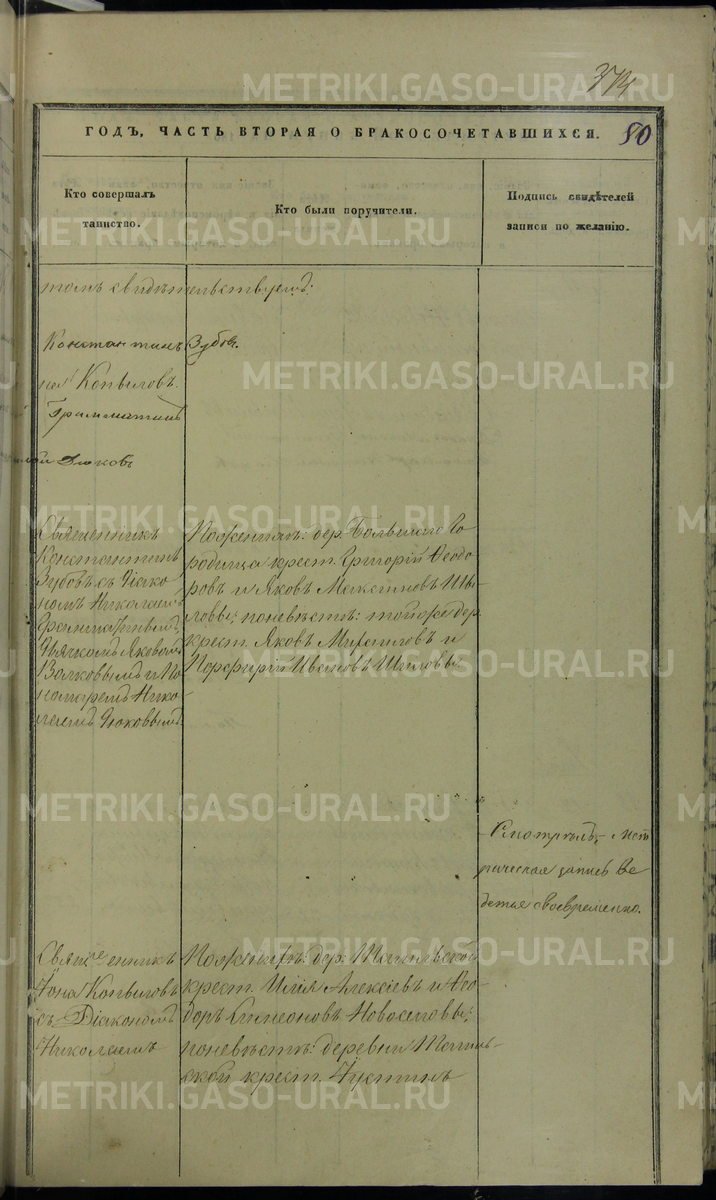 METRIKI.GASO-URAL.RU
ГОДЪ, ЧАСТЬ ВТОРАЯ О БРАКОСОЧЕТАВШИХСЯ.
80
Кто совершалъ
таинство.
Кто были поручители.
Подпись свидѣтелей
записи по желанію.
томъ свидѣтельствуемъ:
Константинъ Зубовъ.
Копыловъ.
Дюковъ
Священникъ
Константинъ
Зубовъ съ Діако
номъ Николаемъ
Дьячкомъ Яковомъ
Волковымъ и По
номаремъ Нико
лаемъ Дюковымъ.
По женихѣ: дер. Большаго Го
родища крест. Григорій Ѳеодо
ровъ и Яковъ Максимовъ
по невѣстѣ: той же дер.
крест. Яковъ Михаиловъ и
Порфирій Ивановъ
Смотрѣлъ, Мет
рическая запись Ве
дется своевременно.
Священникъ
Іона Копыловъ
съ Діакономъ
Николаемъ
По женихѣ: дер:
крест. Илія Алексіевъ и Ѳео
доръ Симеоновъ Новоселовы;
по невѣстѣ: деревни
ской крест. Іустинъ